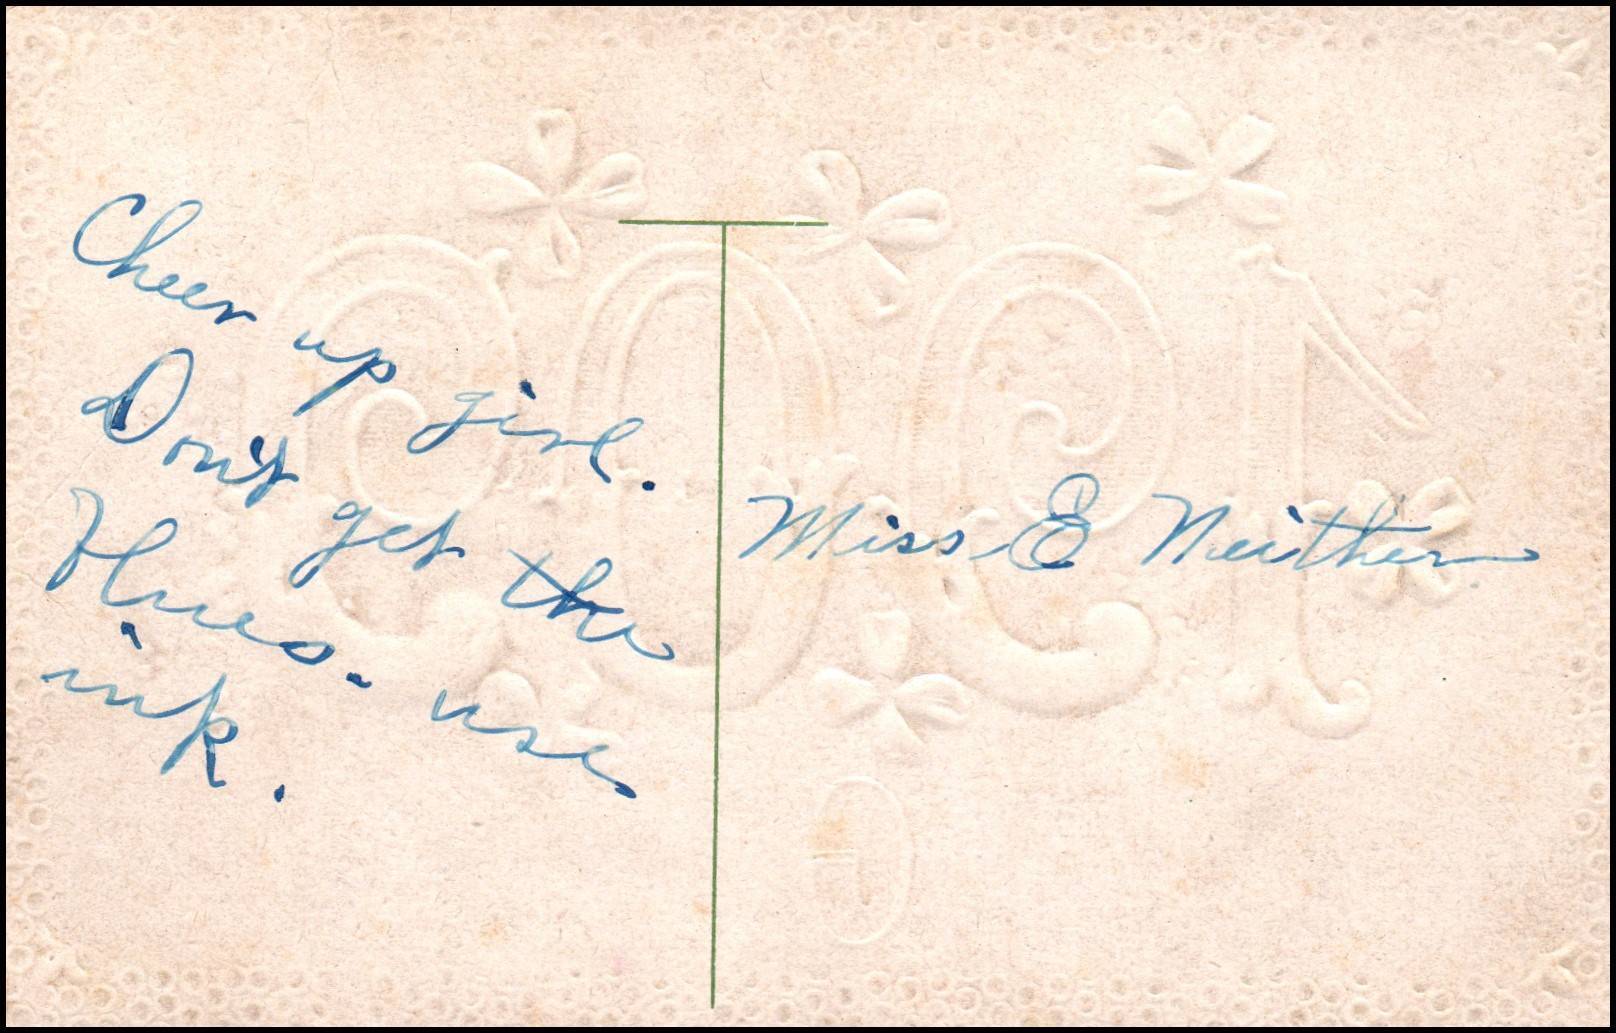 Cheer up girl.
Don't get the
Hues. use
ink.
Miss E Neither
1909